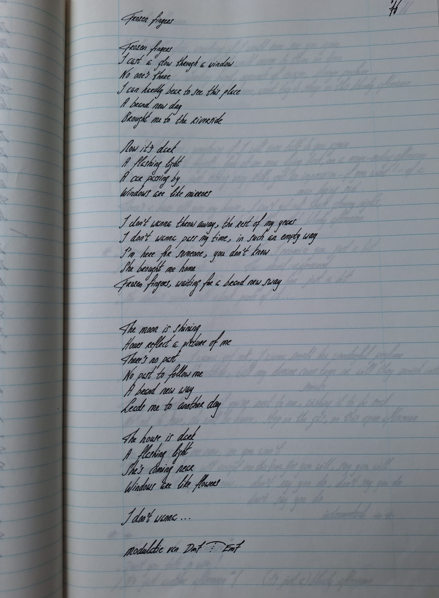 Frozen fingers
Frozen fingers
I cast a glow through a window
No one's there
I can hardly bear to see this place
A brand new day
Brought me to the riverside
Now it's dark
A flashing light
A car passing by
Windows are like mirrors
I don't wanna throw away, the rest of my years
I don't wanna pass my time, in such an empty way
I'm here for someone, you don't know
She brought me home
Frozen fingers, waiting for a brand new sway
The moon is shining
reflect a picture of me
There's no past
No past to follow me
A brand new way
Leads me to another day
The house is dark
A flashing light
She's coming near
Windows are like flowers
I don't wanna ...
modulatie van Dm7 Em7